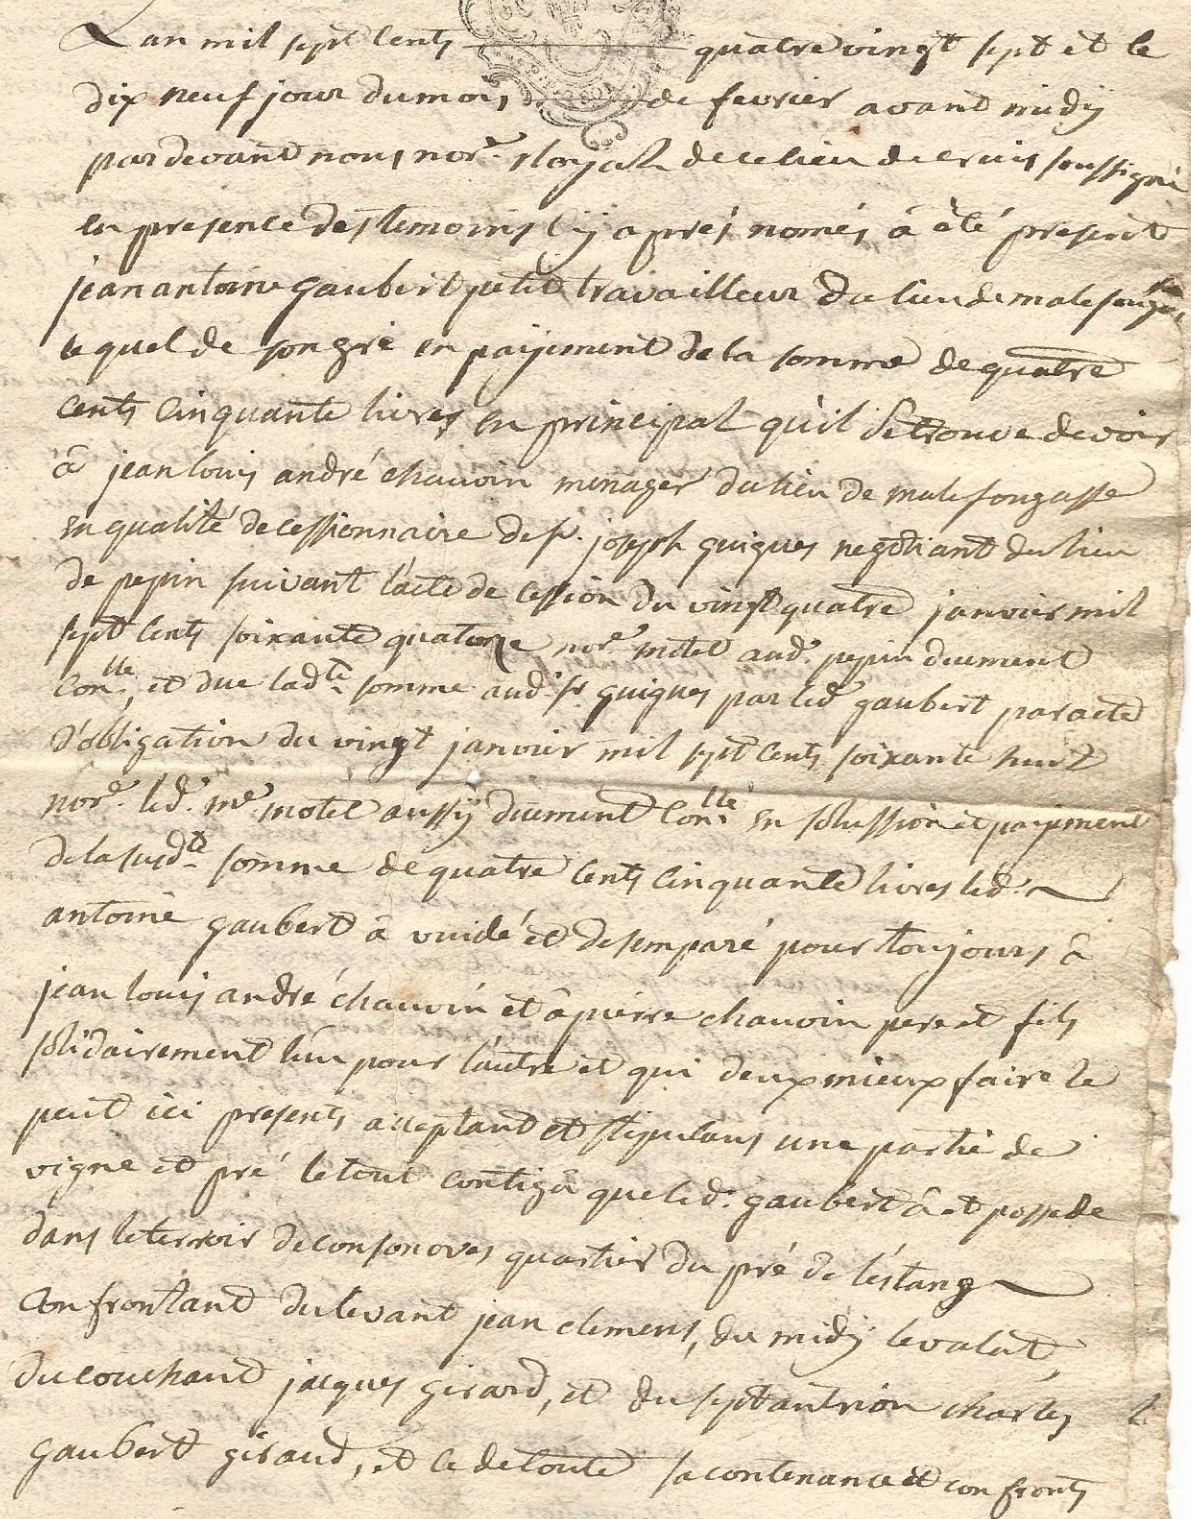 L'an mil sept cents quatre vingt sept et le
dix neuf jour du mois de fevrier avant midÿ
pardevant nous nore. Royal de ce lieu de cruis soussigné
en presence des temoins cÿ aprés només à été present
jean antoine gaubert petit travailleur du lieu de malefougasse
lequel de son gré en paÿement de la somme de quatre
cents cinquante livres en principal qu'il se trouve devoir
â jean louis andré chauvin menager du lieu de malefougasse
en qualité de cessionnaire de sr. joseph guigues negotiant du lieu
de pepin suivant l'acte de cession du vingt quatre janvier mil
sept cents soixante quatorze nore motet aud. pepin duement
conlle. et due ladte. somme aud. sr guigues par led gaubert par acte
d'obligation du vingt janvier mil sept cents soixante huit
nore. led. me. motet aussÿ duement conlle. en solussion et paiement
de la susdte. somme de quatre cents cinquante livres led.
antoine gaubert â vuidé et desemparé pour toujours â
jean louis andré chauvin et â pierre chauvin pere et fils
solidairement l'un pour l'autre et qui deux mieux faire le
peut ici presents acceptant et stipulans une partie de
vigne et pré le tout contigû que led. gaubert â et possede
dans le terroir de consonoves quartier du pré de l'éstang
Confrontant du levant jean clemens, du midÿ le valat,
du couchant jacques girard, et du septantrion charles
gaubert giraud, et ce de toute sa contenance et confronts